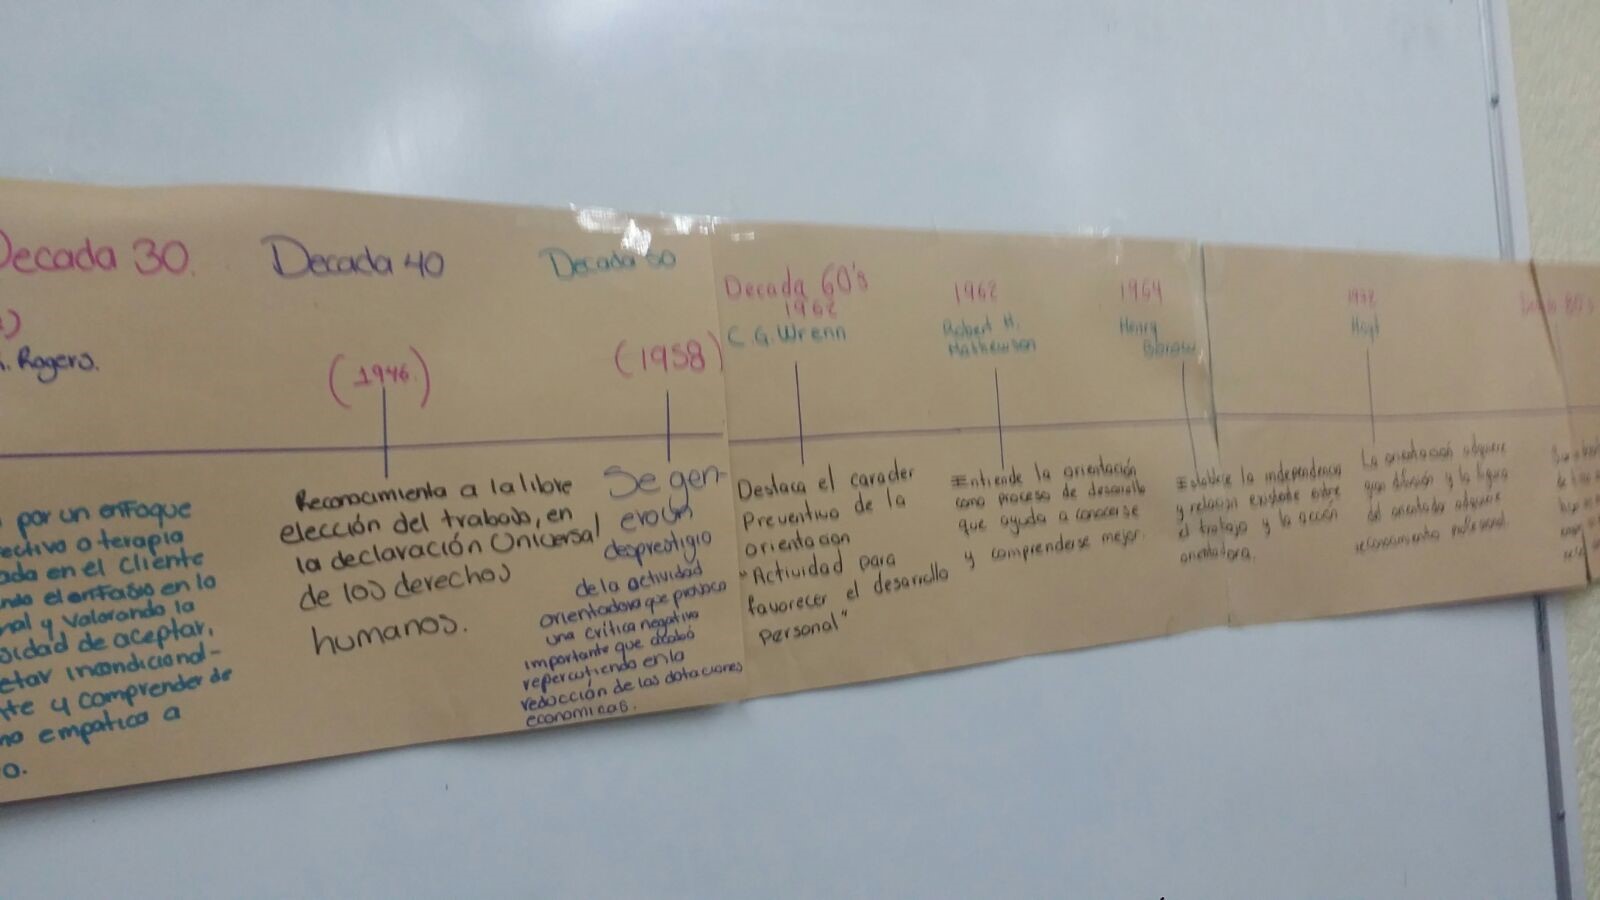 Decada 30.
Rogers.
por un enfoque
ectivo o terapia
ada en el cliente
ando el enfasis en lo
nal y valorando la
sidad de aceptar,
etar incondicional-
te y comprender de
empatico a
o.
Decada 40
(1946)
Reconocimiento a la libre
elección del trabajo, en
la declaración Universal
de los derechos
humanos.
Decada 50
(1958)
Se gen-
eroun
desprestigio
de la actividad
orientadora que provoco
una crítica negativa
importante que acabó
repercutiendo en la
reducción de las dotaciones
economicas.
Decada 60's
1962
C.G. Wrenn
Destaca el caracter
Preventivo de la
orientacion
"Actividad para
favorecer el desarrollo
Personal"
1962
Robert H.
Mathewson
Entiende la orientación
como proceso de desarrollo
que ayuda a conocerse
y comprenderse mejor.
1964
Henry
Borow
Establece la independencia
y relacion existente entre
el trabajo y la acción
orientadora.
Hoyt
La orientación adquiere
gran difusión y la figura
del orientador adquiere
reconocimiento profesional.
80's